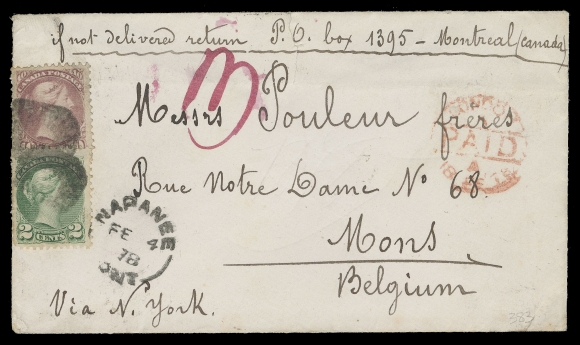 if not delivered return P.O. box 1395 – Montreal (Canada)
CANADA POSTAGE
3
Messrs Pouleur frères
LONDON
PAID
Rue Notre Dame No 68.
2 CENTS 2
NAPANEE
FE 4
78
ONT
Mons
Belgium
Via N. York.
333